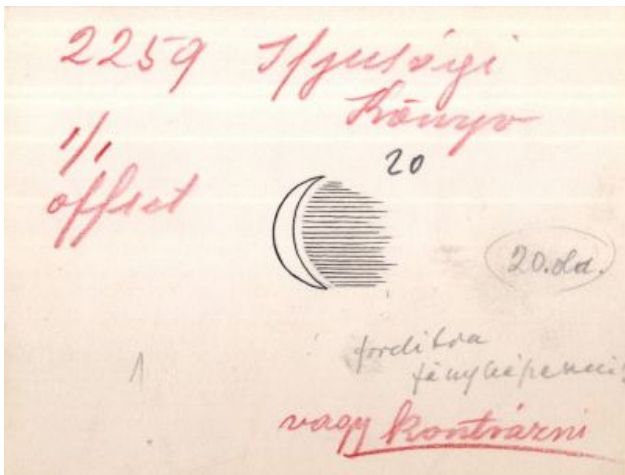 2259 Ifjusági
Könyv
1/1
offset
20
20.old.
forditva
fényképezni!
1
vagy kontrázni